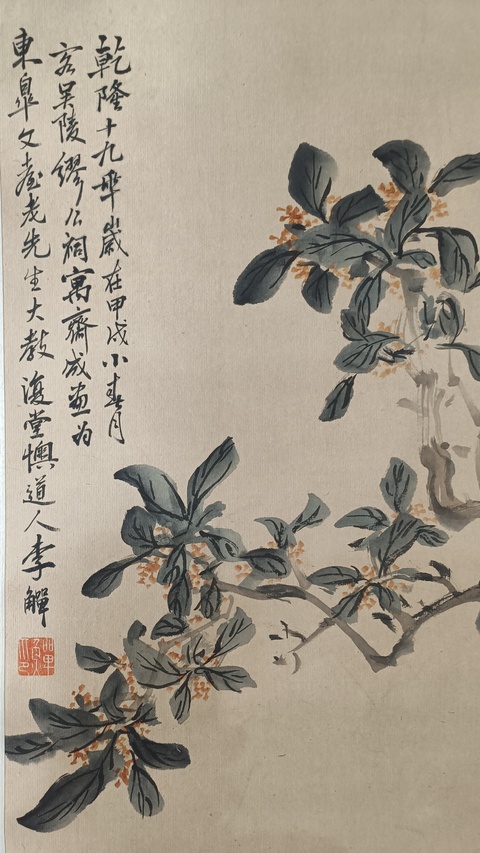 乾隆十九年歲在甲戌小春月
客吴陵繆公祠寓齋成畫为
東皐文臺老先生大教復堂懊道人李觶